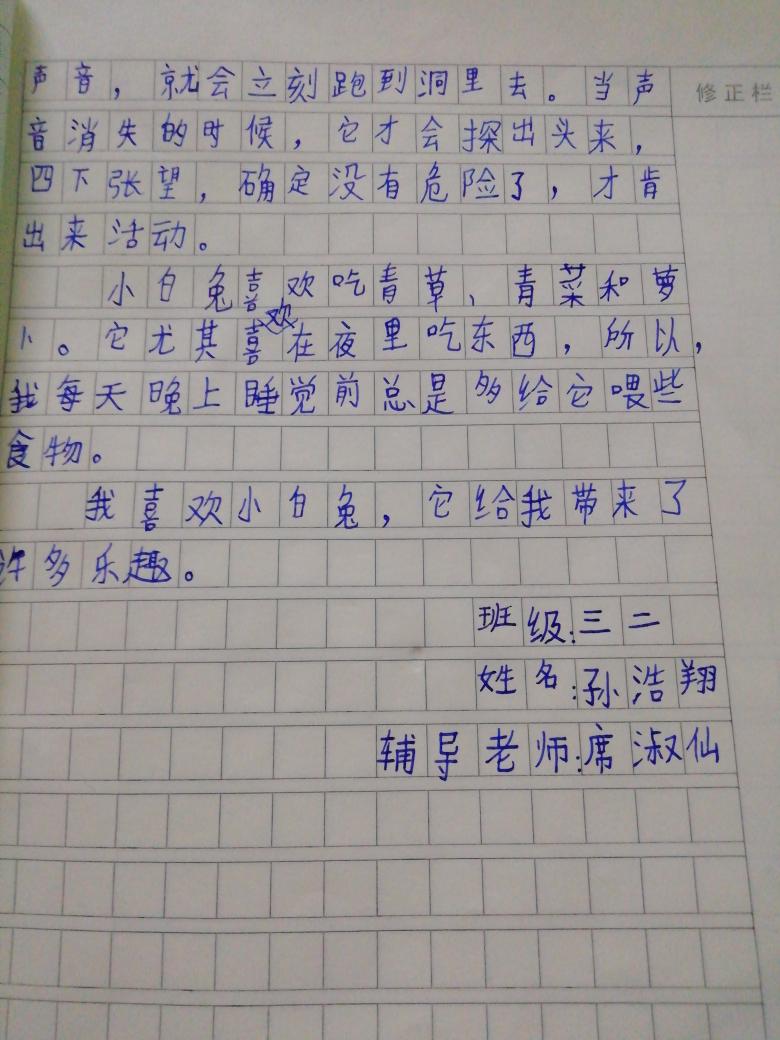 声音，就会立刻跑到洞里去。当声
修正栏
音消失的时候，它才会探出头来，
四下张望，确定没有危险了，才肯
出来活动。
小白兔喜欢吃青草、青菜和萝
卜。它尤其喜欢在夜里吃东西，所以，
我每天晚上睡觉前总是多给它喂些
食物。
我喜欢小白兔，它给我带来了
许多乐趣。
班级：三二
姓名：孙浩翔
辅导老师：席淑仙